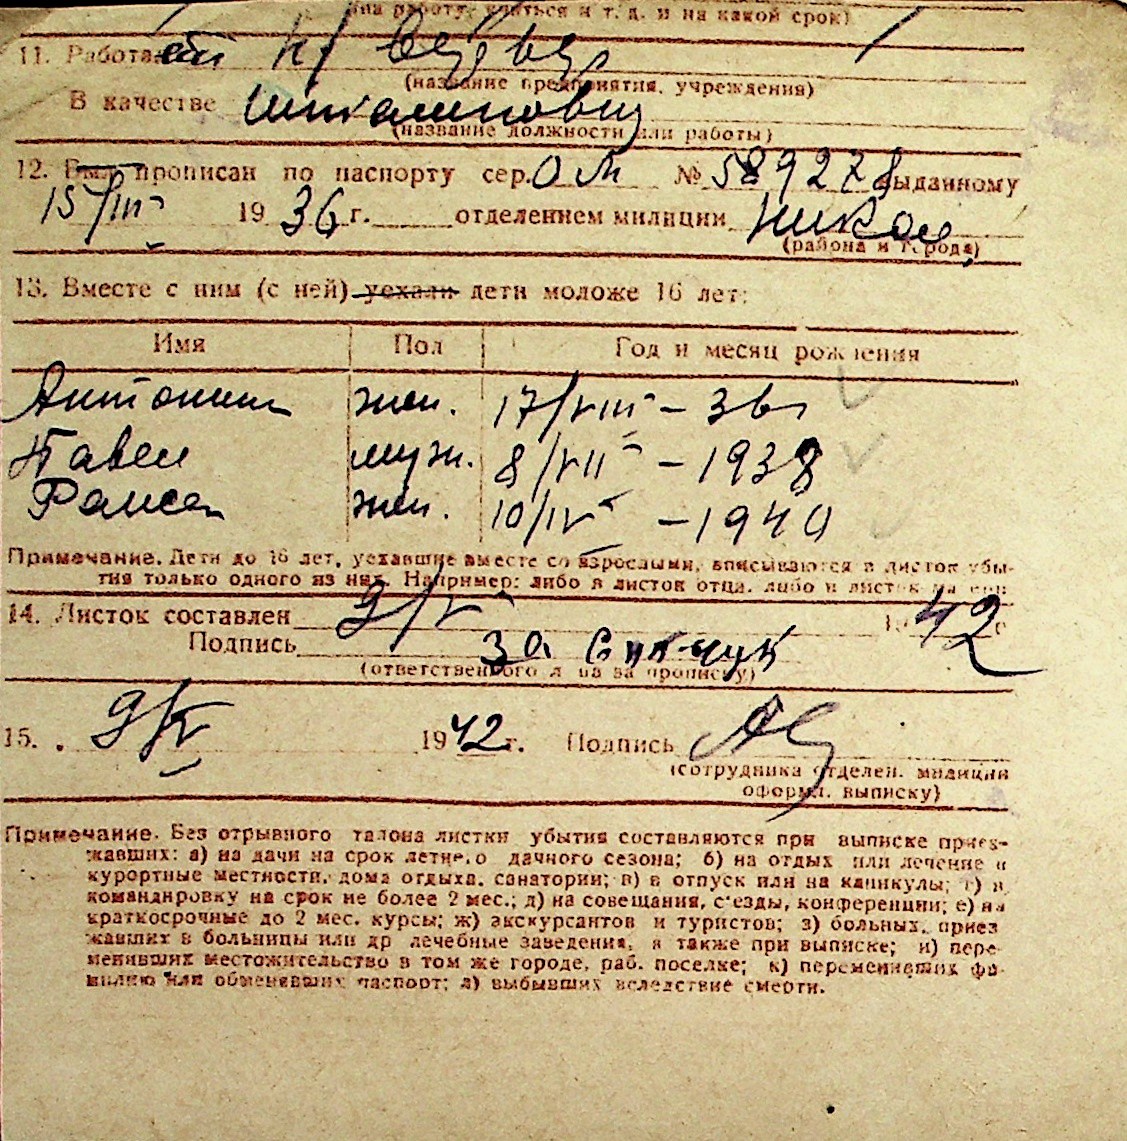 (на работу, учиться и т. д. и на какой срок)
11. Работает
(название предприятия, учреждения)
В качестве
(название должности или работы)
12. Был прописан по паспорту сер. ОМ № 589278 выданному
15/III 1936 г. отделением милиции Никол
(района и города)
13. Вместе с ним (с ней) уехали дети моложе 16 лет:
Имя Пол Год и месяц рождения
Антонин жен. 17/VIII – 36
Павел муж. 8/VII – 1938
Раиса жен. 10/IV – 1940
Примечание. Дети до 16 лет, уехавшие вместе со взрослыми, вписываются в листок убы-
тия только одного из них. Например: либо в листок отца, либо в листок матери
14. Листок составлен 9/V 1942 г
Подпись За
(ответственного лица за прописку)
15. 9/V 1942 г. Подпись
(сотрудника отделен. милиции
оформ. выписку)
Примечание. Без отрывного талона листки убытия составляются при выписке приез-
жавших: а) на дачи на срок летнего дачного сезона; б) на отдых или лечение в
курортные местности, дома отдыха, санатории; в) в отпуск или на каникулы; г) в
командировку на срок не более 2 мес.; д) на совещания, съезды, конференции; е) на
краткосрочные до 2 мес. курсы; ж) экскурсантов и туристов; з) больных, приез
жавших в больницы или др лечебные заведения, а также при выписке; и) пере-
менивших местожительство в том же городе, раб. поселке; к) переменивших фа-
милию или обменявших паспорт; л) выбывших вследствие смерти.